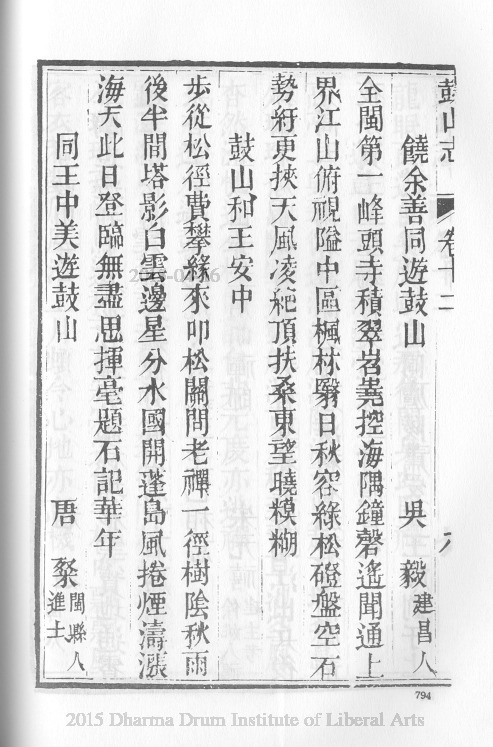 鼓山志 卷十二
饒余善同遊鼓山 吳 毅 建昌人
全閩第一峰頭寺積翠岧嶤控海隅鐘磬遙聞通上
界江山俯視隘中區楓林翳日秋容綠松磴盤空石
勢紆更挾天風凌絕頂扶桑東望曉糢糊
鼓山和王安中
步從松徑費攀緣來叩松關問老禪一徑樹陰秋雨
後半間塔影白雲邊星分水國開蓬島風捲煙濤漲
海天此日登臨無盡思揮毫題石記華年
同王中美遊鼓山 唐 閩縣人
進士
794
2015 Dharma Drum Institute of Liberal Arts